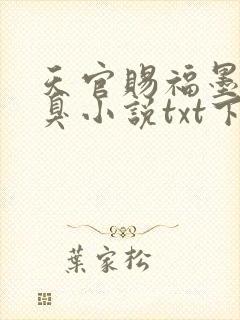 天官赐福墨
臭小说txt下
葉家松